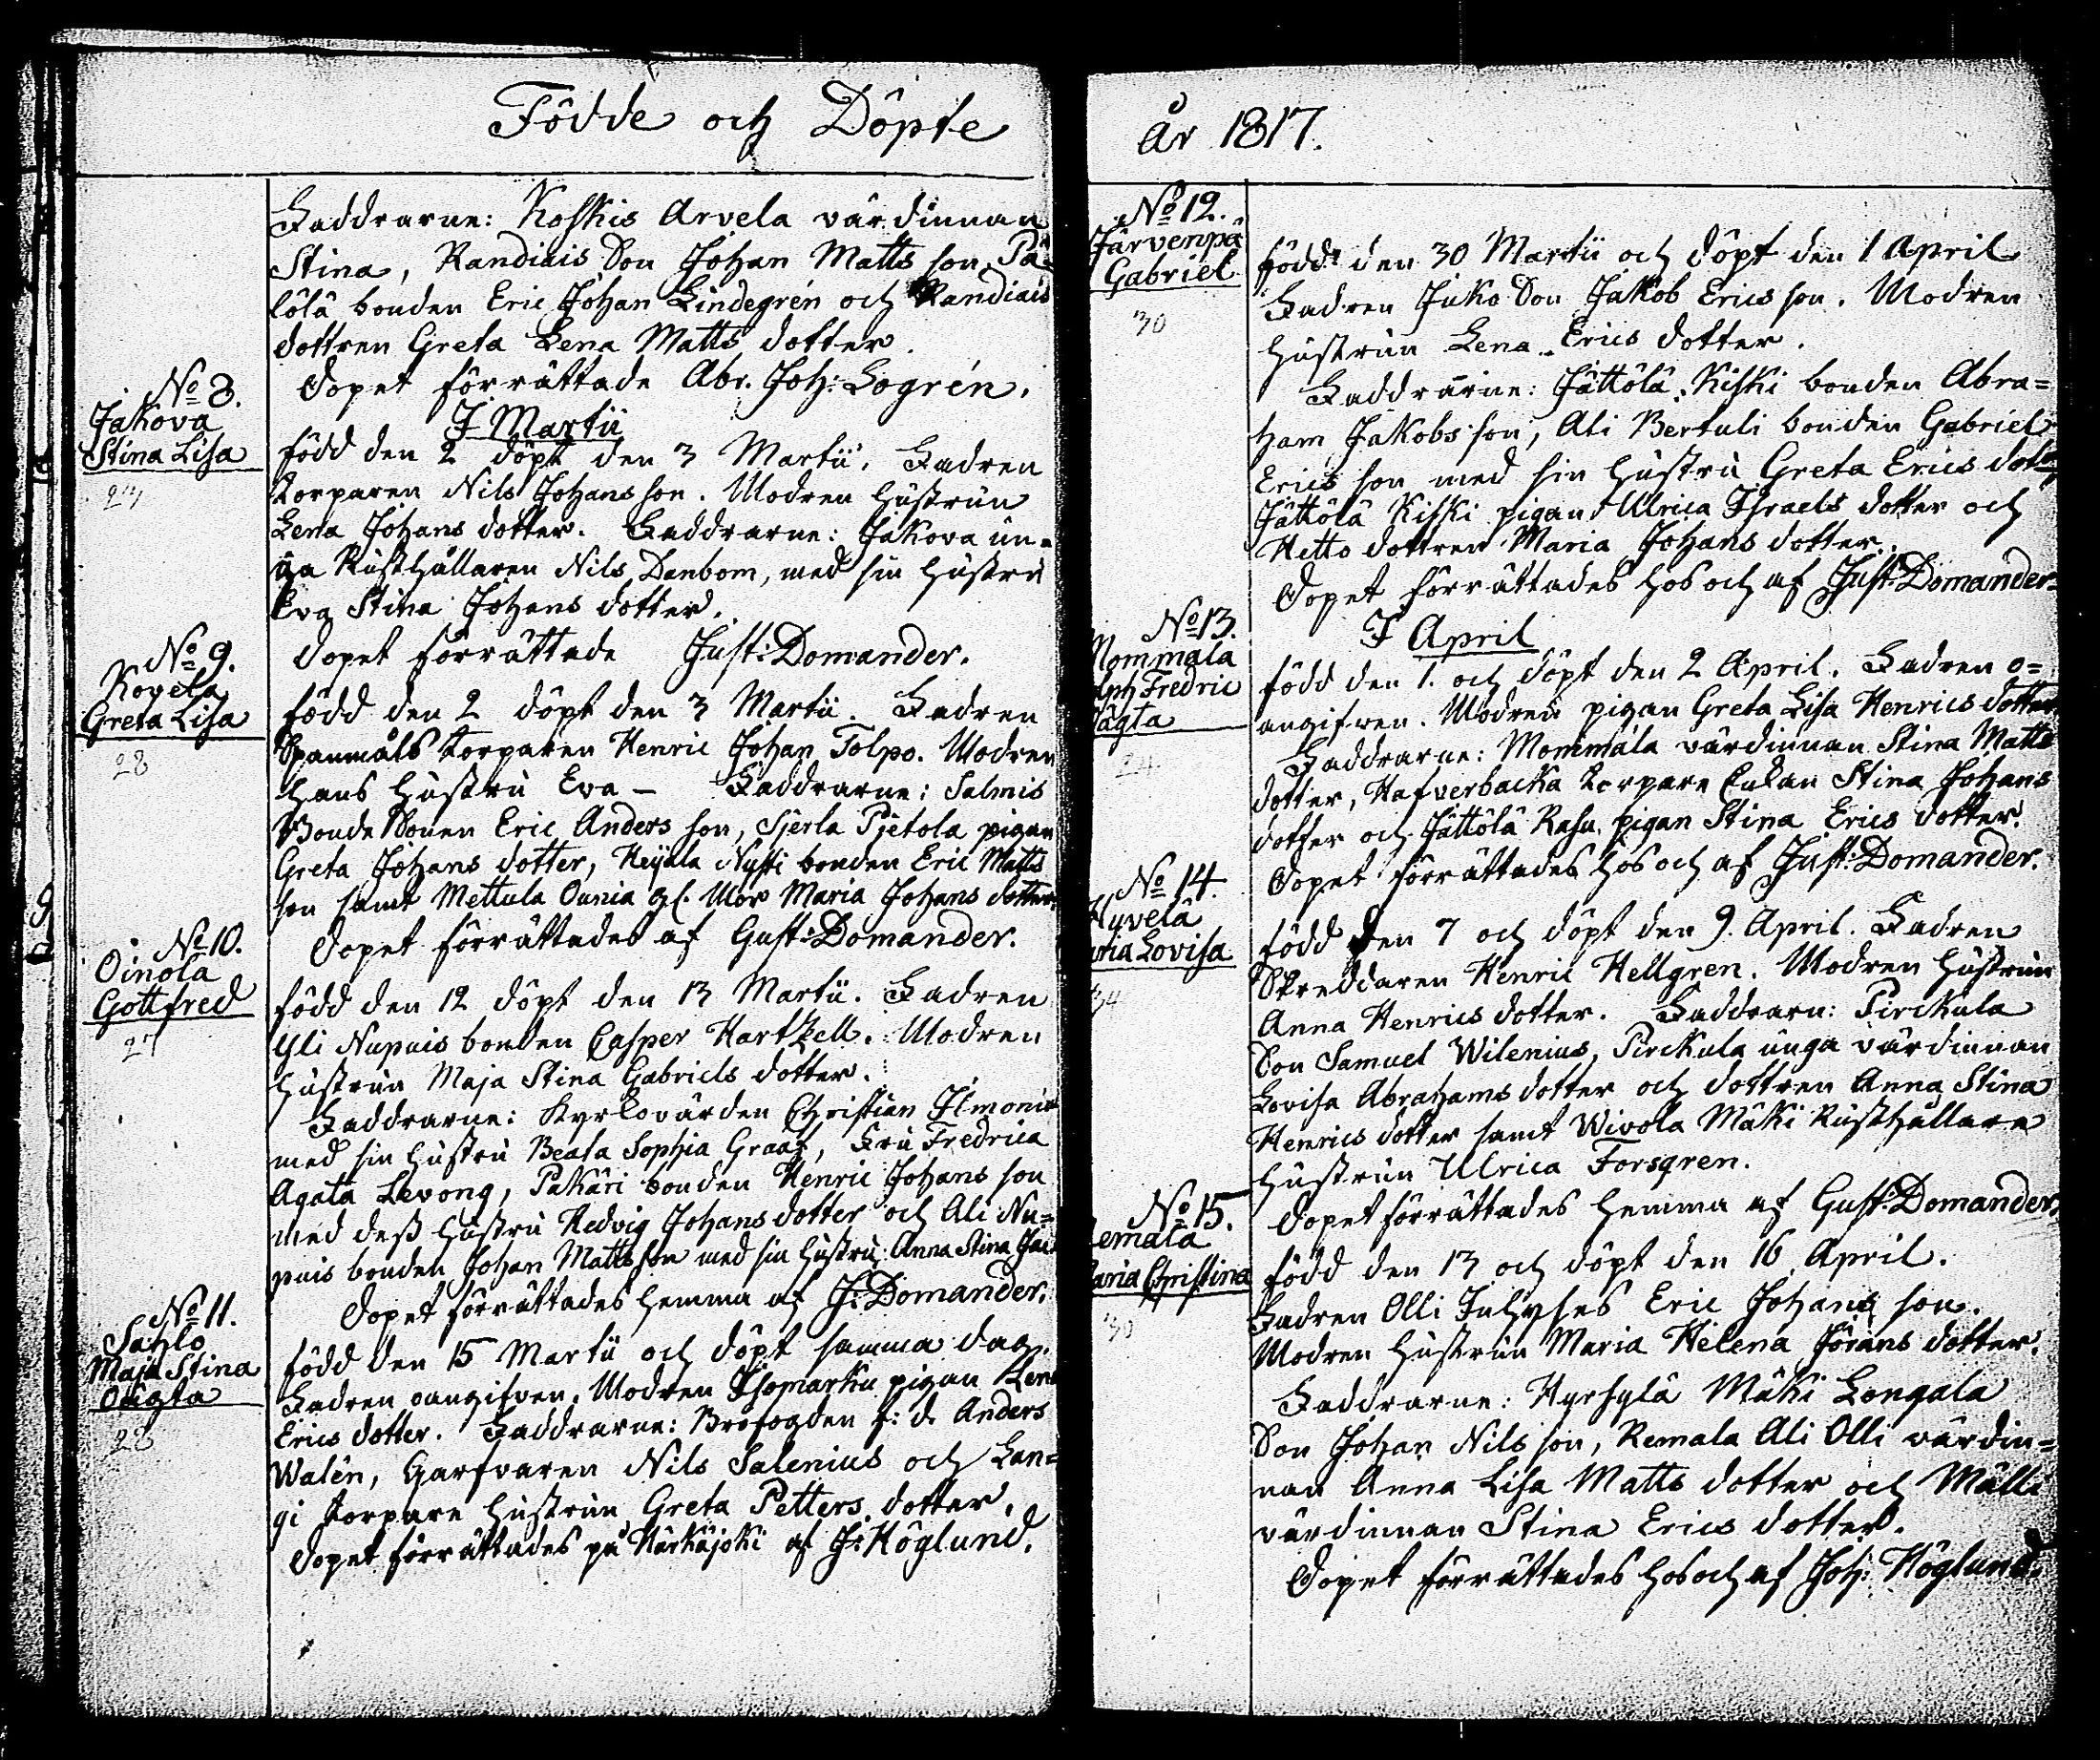 Födde och Döpte
Faddrarne: Koskis Arvela värdinnan
Stina, Randiais Son Johan Matts son, Pä=
lölä bonden Eric Johan Lindegrén och Randiais
dottren Greta Lena Matts dotter.
Dopet förrättade Abr. Joh: Logrén.
No 8.
Jakova
Stina Lisa
24
I Martii
född den 2 döpt den 3 Martii. Fadren
torparen Nils Johans son. Modren hustrun
Lena Johans dotter. Faddrarne: Jakova un=
ga Rusthållaren Nils Danbom, med sin hustru
Eva Stina Johans dotter.
Dopet förrättade Just: Domander.
No 9.
Kovela
Greta Lisa
28
född den 2 döpt den 3 Martii. Fadren
Spanmåls torparen Henric Johan Tolpo. Modren
hans hustru Eva – Faddrarne: Salmis
Bonde Sonen Eric Anders son, Sjerla Pjetola pigan
Greta Johans dotter, Heijala Nysti bonden Eric Matts
son samt Mettula Ounia gl. Mor Maria Johans dotter.
Dopet förrättades af Gust: Domander.
No 10.
Oinola
Gottfred
27
född den 12 döpt den 13 Martii. Fadren
Yli Nupuis bonden Casper Hartzell. Modren
hustrun Maja Stina Gabriels dotter.
Faddrarne: Kyrkovärden Christian Ilmoni
med sin hustru Beata Sophia Graaf, Fru Fredrica
Agata Levong, Pakäri bonden Henric Johans son
med dess hustru Hedvig Johans dotter och Ali Nu=
puis bonden Johan Matts son med sin hustru Anna Stina
Dopet förrättades hemma af J: Domander.
No 11.
Sahlo
Maja Stina
Oägta
28
född den 15 Martii och döpt samma dag.
Fadren oangifven. Modren Isomarku pigan Lena
Erics dotter. Faddrarne: Brofogden f: d. Anders
Walén, Garfvaren Nils Salenius och Lan=
gi torpare hustrun Greta Petters dotter.
Dopet förrättades på Härkäjoki af J: Höglund.
År 1817.
No 12.
Järvenpä
Gabriel
30
född den 30 Martii och döpt den 1 April
Fadren Juko Son Jakob Erics son. Modren
hustrun Lena Erics dotter.
Faddrarne: Jättölä Kiski bonden Abra=
ham Jakobs son, Ali Bertuli bonden Gabriel
Erics son med sin hustru Greta Erics dotter
Jättölä Kiski pigan Ulrica Israels dotter och
Hetto dottren Maria Johans dotter.
Dopet förrättades hos och af Just: Domander.
No 13.
Mommala
lph Fredric
ägta
24
I April
född den 1. och döpt den 2 April. Fadren o=
angifven. Modren pigan Greta Lisa Henrics dotter
Faddrarne: Mommala värdinnan Stina Matts
dotter, Hafverbacka torpare Enkan Stina Johans
dotter och Jättölä Rasu pigan Stina Erics dotter.
Dopet förrättades hos och af Just: Domander.
No 14.
Hyvelä
aria Lovisa
34
född den 7 och döpt den 9. April. Fadren
Skreddaren Henric Hellgren. Modren hustrun
Anna Henrics dotter. Faddrarn: Pirckula
Son Samuel Wilenius, Pirckula unga värdinnan
Lovisa Abrahams dotter och dottren Anna Stina
Henrics dotter samt Wivola Mäki Rusthållare
hustrun Ulrica Forsgren.
Dopet förrättades hemma af Gust: Domander.
No 15.
Remala
Maria Christina
30
född den 13 och döpt den 16 April.
Fadren Olli Inhyses Eric Johans son.
Modren hustrun Maria Helena Jörans dotter.
Faddrarne: Hyrsylä Mäki Longala
Son Johan Nils son, Remala Ali Olli värdin=
nan Anna Lisa Matts dotter och Mälli
värdinnan Stina Erics dotter.
Dopet förrättades hos och af Joh: Höglund.